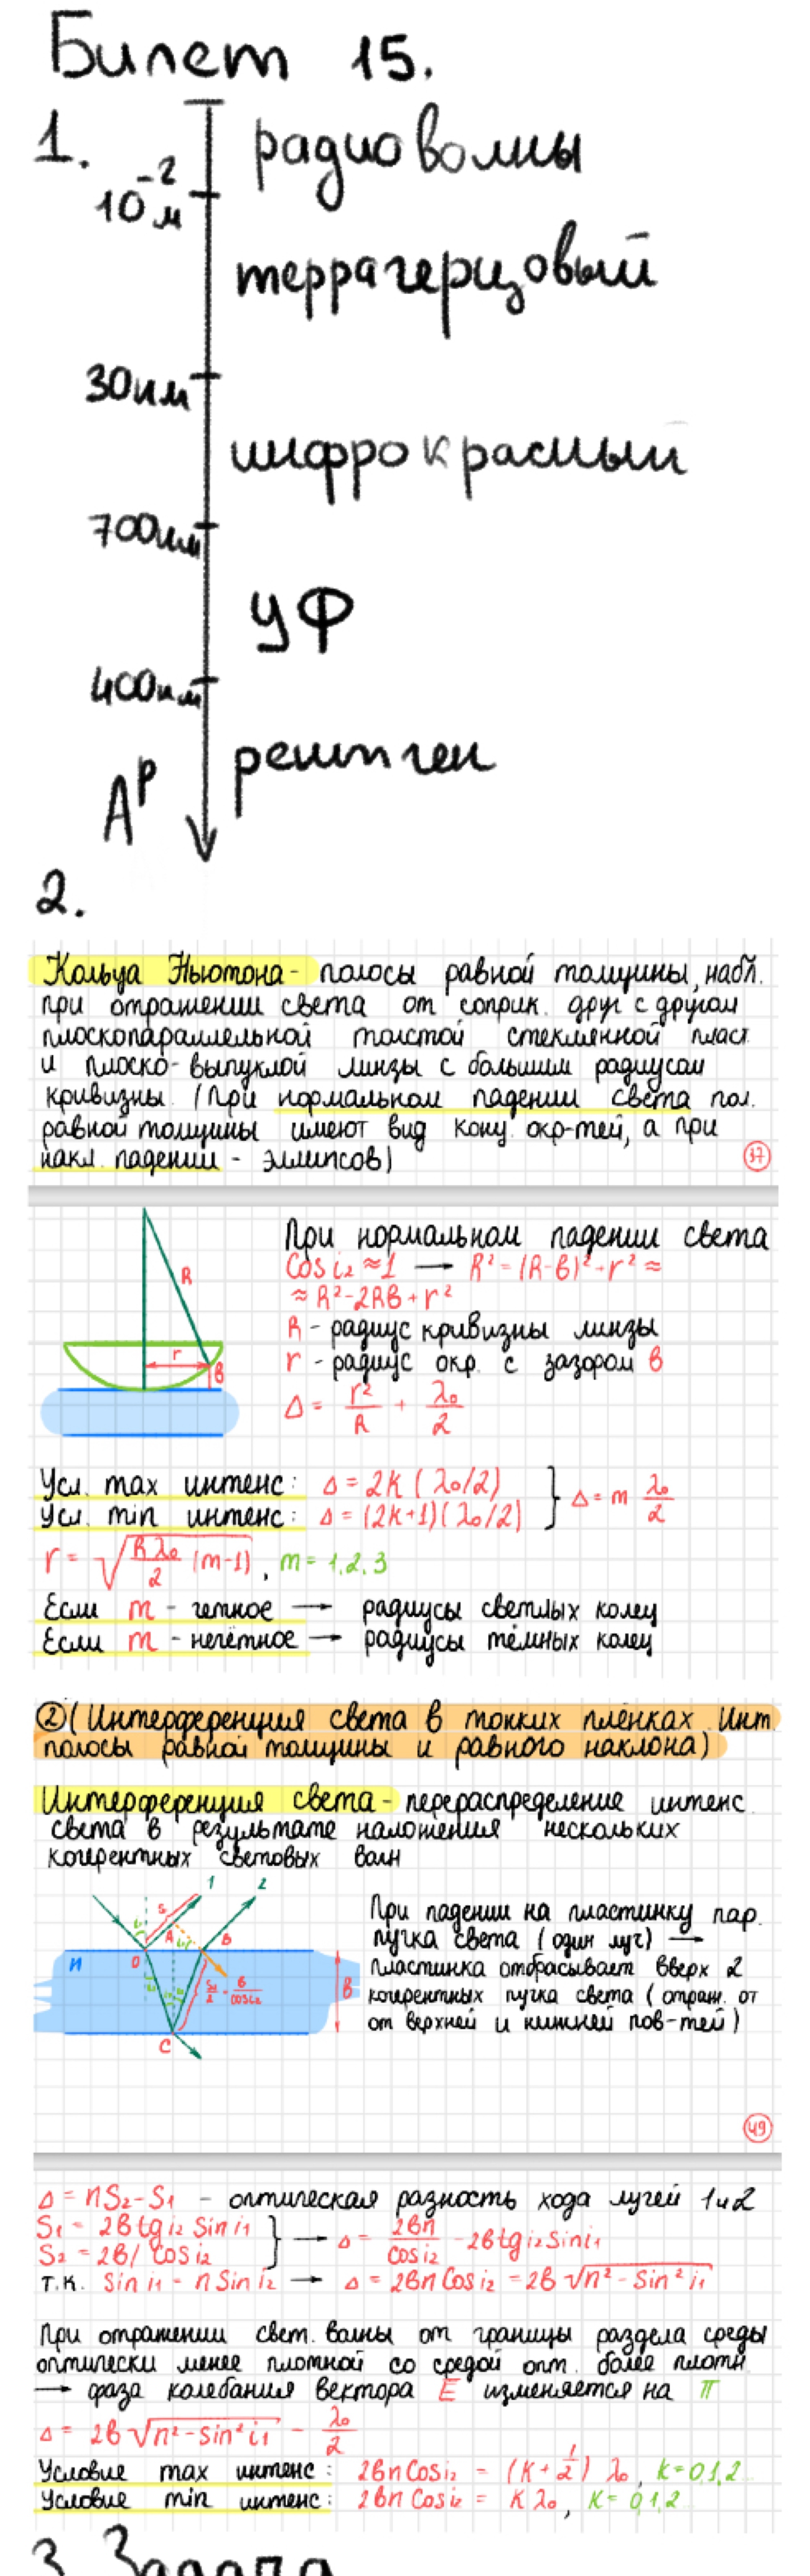 Билет 15.
1.
радиоволны
10⁻² м
террагерцовый
30нм
инфрокрасный
700нм
УФ
400нм
рентген
Aᴾ
2.
Кольца Ньютона - полосы равной толщины, набл.
при отражении света от соприк. друг с другом
плоскопараллельной толстой стеклянной пласт.
и плоско-выпуклой линзы с большим радиусом
кривизны. (При нормальном падении света пол.
равной толщины имеют вид конц. окр-тей, а при
накл. падении - эллипсов)
37
При нормальном падении света
Cos i₂ ≈ 1 → R² = (R-b)² + r² ≈
≈ R² - 2Rb + r²
R - радиус кривизны линзы
r - радиус окр. с зазором b
Δ = r²/R + λ₀/2
R
r
b
Усл. max интенс: Δ = 2k (λ₀/2)
Усл. min интенс: Δ = (2k+1)(λ₀/2) } Δ = m λ₀/2
r = √(Rλ₀/2 (m-1)), m = 1,2,3
Если m - четное → радиусы светлых колец
Если m - нечётное → радиусы тёмных колец
② (Интерференция света в тонких плёнках. Инт.
полосы равной толщины и равного наклона)
Интерференция света - перераспределение интенс.
света в результате наложения нескольких
когерентных световых волн
1 2
S₁
A
O B
n
S₂/2 = b/cos i₂
b
C
При падении на пластинку пар.
пучка света (один луч) →
пластинка отбрасывает вверх 2
когерентных пучка света (отраж. от
от верхней и нижней пов-тей)
49
Δ = nS₂ - S₁ - оптическая разность хода лучей 1 и 2
S₁ = 2b tg i₂ Sin i₁
S₂ = 2b / Cos i₂ } → Δ = 2bn/cos i₂ - 2b tg i₂ Sin i₁
т.к. Sin i₁ = n Sin i₂ → Δ = 2bn Cos i₂ = 2b √(n² - Sin² i₁)
При отражении свет. волны от границы раздела среды
оптически менее плотной со средой опт. более плотн.
→ фаза колебания вектора E изменяется на π
Δ = 2b √(n² - Sin² i₁) - λ₀/2
Условие max интенс: 2bn Cos i₂ = (K + 1/2) λ₀, k = 0,1,2...
Условие min интенс: 2bn Cos i₂ = K λ₀, K = 0,1,2...
3. Задача